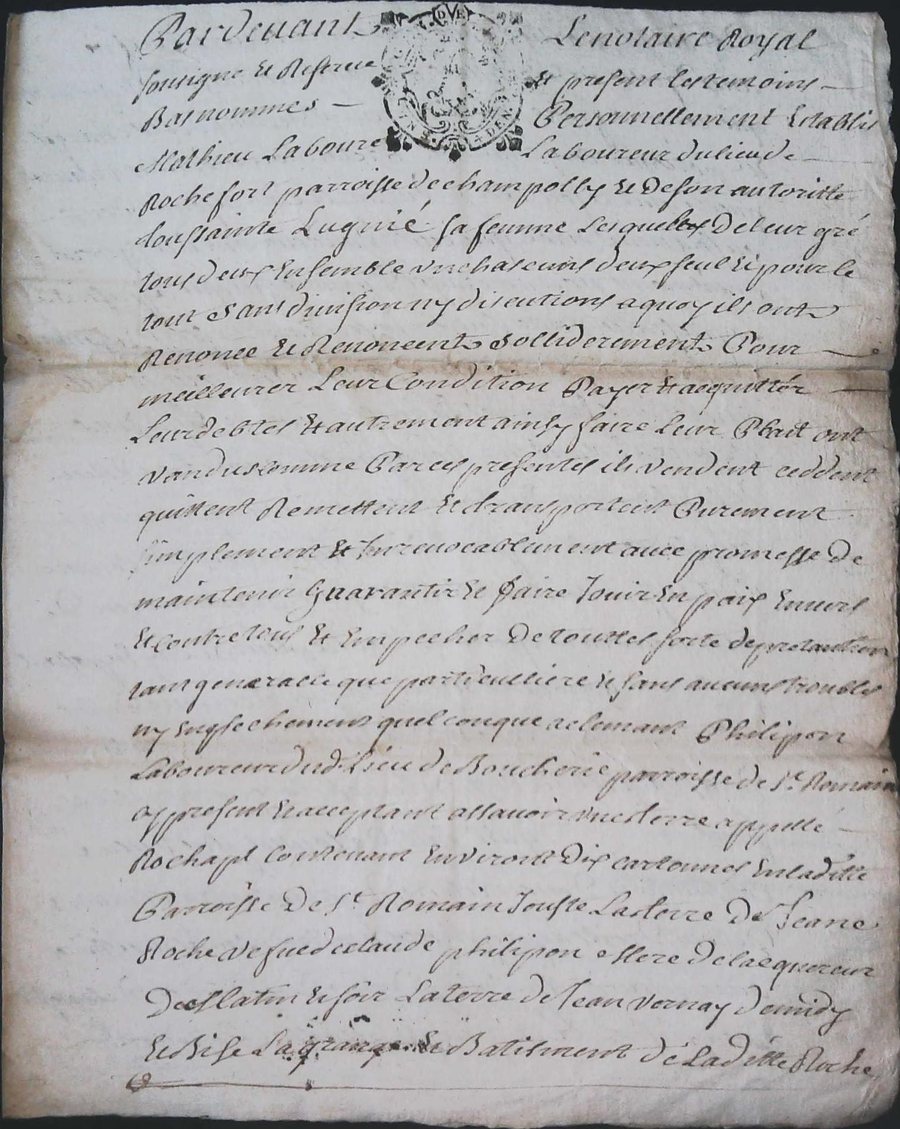 Pardevant Lenotaire Royal
sousigne et Reserve et present lestemoins
Basnommes Personnellement Establis
Mathieu Laboure Laboureur dulieu de
Rochefort parroisse de champolly et deson autoritte
toussainte Lugnié sa femme Lesquels deleur gré
tous deux Ensemble unchascuns deux seul et pour le
tout sans division ny discutions aquoy ils ont
Renoncé et Renoncent sollidérement Pour
meilleurer Leur Condition Payer et acquittér
Leur debtes et autrement ainsy faire Leur Plait ont
vandus comme Par ces presentes ils vendent ceddent
quittent Remettent et transportent Purement
simplement et Inrevocablement avec promesse de
maintenir Guarantir et faire Jouir En paix Envers
et contre tous et Empecher de touttes sorte de pretantion
tant generalle que particulliere et sans aucuns troubles
ny Enpechement quelconque a clemant Philipon
Laboureur dud Lieu de Boucherie parroisse de St Romain
cy present et acceptant assavoir une terre appellé
Rochapt contenant Environt dix cartonnes En ladite
Parroisse de St Romain Jouste La terre de Jeane
Roche vefue de claude philipon et Mere de lacquereur
de Matin et soir La terre de Jean vernay de midy
et Bise La grange et Batiment de Laditte Roche